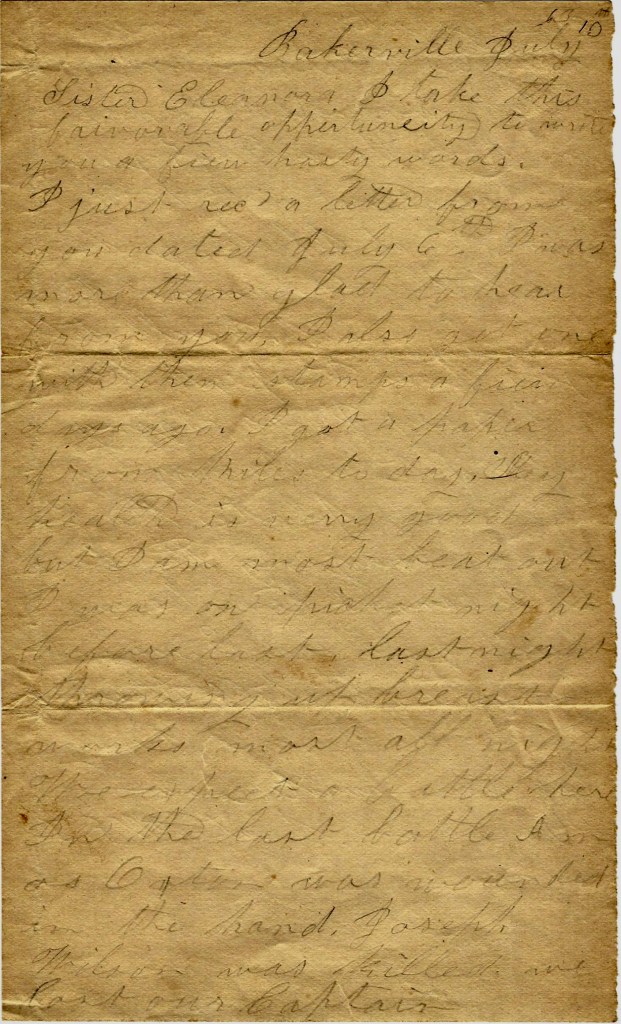 63
Bakerville July 10th
Sister Eleanora I take this
faivorable oppertuneity to write
you a fiew hasty words.
I just recd a letter from
you dated July 6th I was
more than glad to hear
from you. I also got one
with then stamps a fiew
days ago. I got a paper
from Miles to day. My
health is very good
but I am most beat out
I was on picket night
before last, last night
throwing up breast
works most all night
We expect a battle here
In the last battle Am
os Orton was wounded
in the hand. Joseph
Wilson was killed. we
lost our Captain